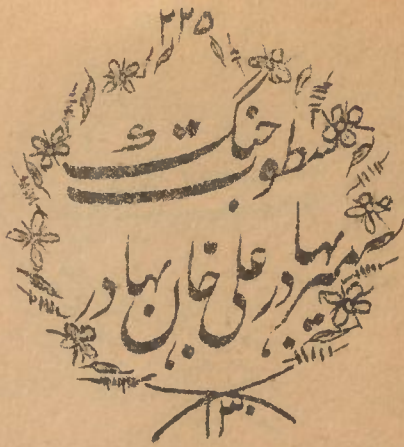 ۲۲۵
سطوت جنگ
میر بہادر علی خان بہادر
۱۳